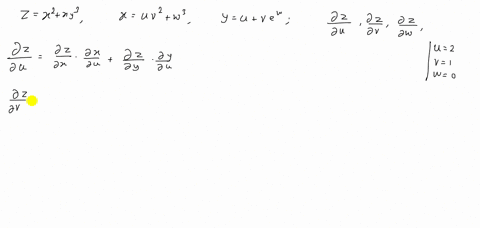 z = x² + xy³,   x = uv² + w³,   y = u + ve^w ;   ∂z/∂u , ∂z/∂v , ∂z/∂w ,
∂z/∂u = ∂z/∂x · ∂x/∂u + ∂z/∂y · ∂y/∂u
u = 2
v = 1
w = 0
∂z/∂v